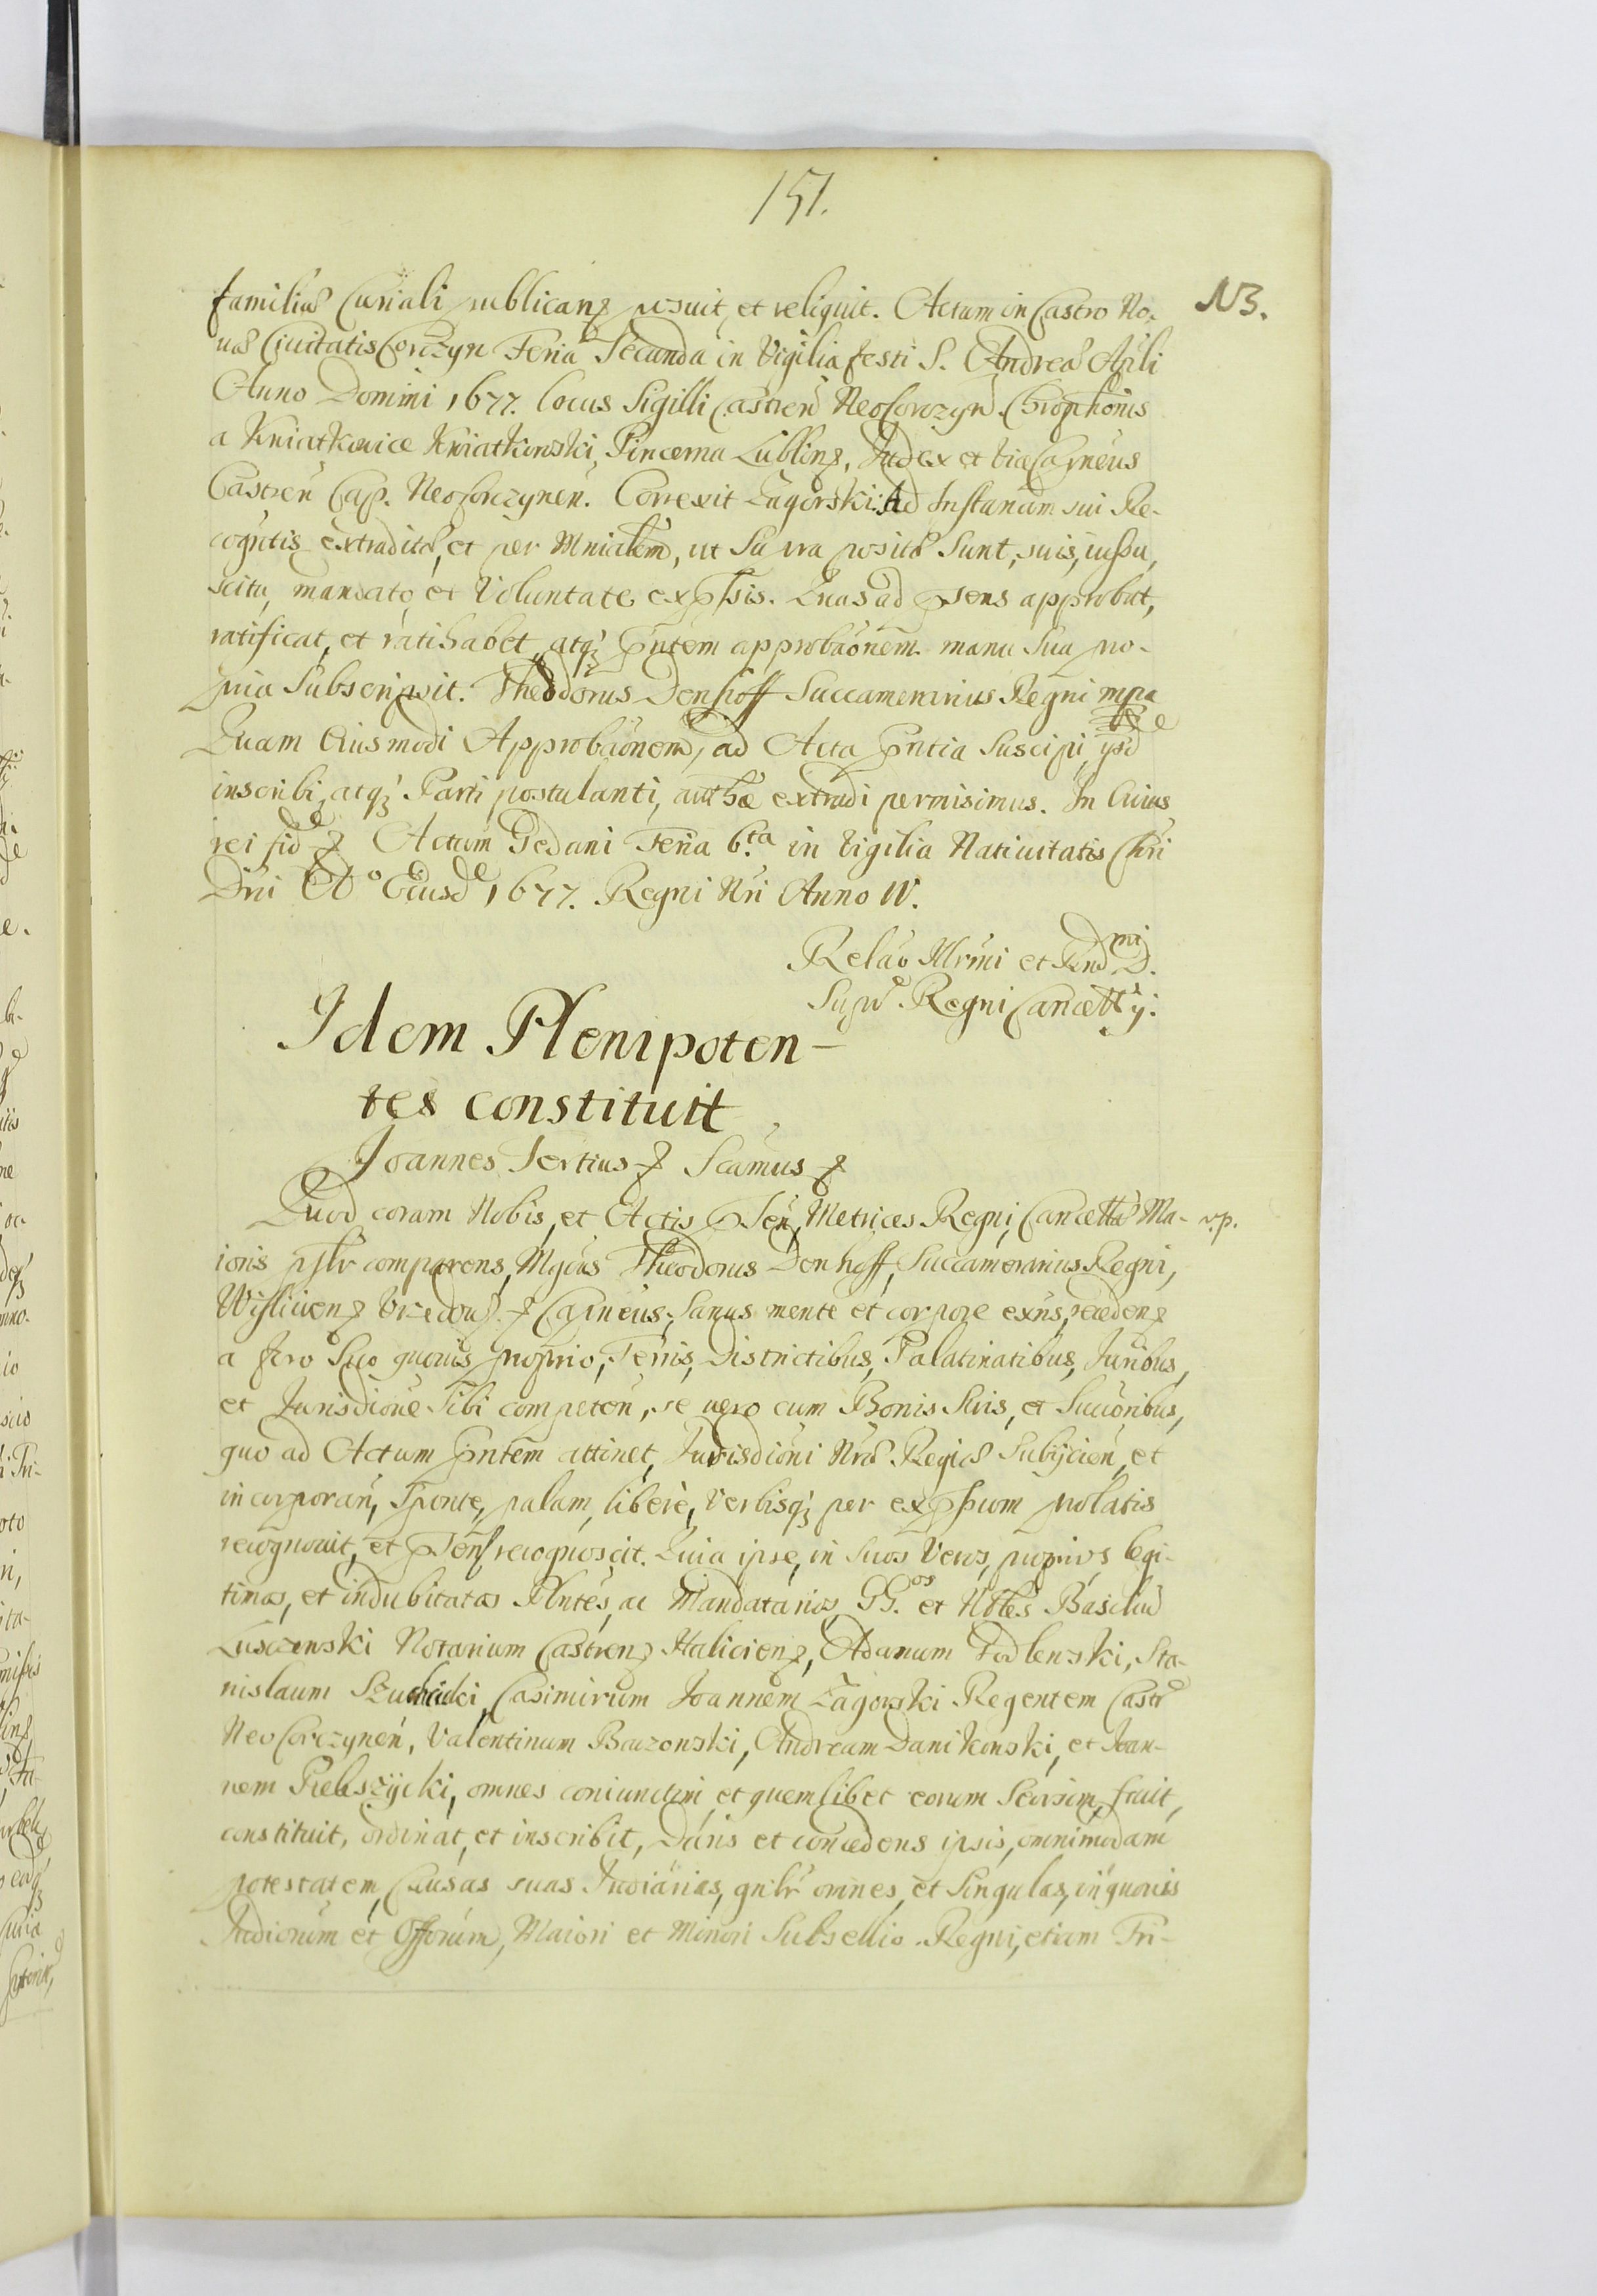 151.
familiæ Curiali publicanꝫ posuit, et reliquit. Actum in Castro No- NB.
uæ Ciuitatis Corczyn Feria Secunda in Vigilia festi S. Andreæ Apli
Anno Domini 1677. locus Sigilli Castren NeoCorczyn. Chrophorus
a Kwiatkowice Kwiatkowski, Pincerna Lublinꝫ, Judex et ViceCapneus
Castren Cap. NeoCorczynen. Correxit Zagorski. Ad Instanam sui Re-
cogntis extraditæ, et per Mnialem, ut Supra positæ Sunt, suis, iussu,
scitu, mandato, et Voluntate expssis. Quas ad psens approbat,
ratificat, et ratihabet, atqꝫ pntem approbaonem manu Sua pro-
pria Subscripsit. Theodorus Denhoff Succamerarius Regni mpa
Quam Eiusmodi Approbaonem, ad Acta pntia Suscipi, ipsde
inscribi, atqꝫ Parti postulanti, authæ extradi permisimus. In Cuius
rei fide ꝫ Actum Gedani Feria 6.ta in Vigilia Natiuitatis Chri
Dni Ao Eiusde 1677. Regni Nri Anno IV.
Relao Illrmi et Rnd mi D.
Supr. Regni Cancellry:
Idem Plenipoten-
tes constituit
Joannes Tertius ꝫ Scimus ꝫ
Quod coram Nobis, et Actis psen, Metrices Regni, Cancellæ Ma- v.p.
ioris pslr comparens, Mgcus Theodorus Denhoff, Succamerarius Regni,
Wislicienꝫ ꝫ Capneus, Sanus mente et corpore exns, recedenꝫ
a foro Suo quouis proprio, Terris, Districtibus, Palatinatibus, Juribus,
et Jurisdione Sibi competen, se uero cum Bonis Suis, et Succoribus,
quo ad Actum pntem attinet, Jurisdioni Nræ Regiæ Subijcien, et
incorporan, Sponte, palam, libere, verbisqꝫ per expssum prolatis
recognouit, et psens recognoscit. Quia ipse, in Suos Veros, proprios, legi-
timos, et indubitatos Plntes, ac Mandatarios, GG.os et Nbles Basiliu
Lusczewski Notarium Castrenꝫ Halicienꝫ, Adamum Podlewski, Sta-
nislaum Casimirum Joannem Zagorski Regentem Castr
NeoCorczynen, Valentinum Andream Danikowski, et Joan-
nem omnes coniunctim, et quemlibet eorum Seorsim, fecit,
constituit, ordinat, et inscribit, Dans et concedens ipsis, omnimodam
potestatem, Causas suas Judiarias, gnlr omnes, et Singulas, in quouis
Judiorum et Offorum, Maiori et Minori Subsellio Regni, etiam Tri-